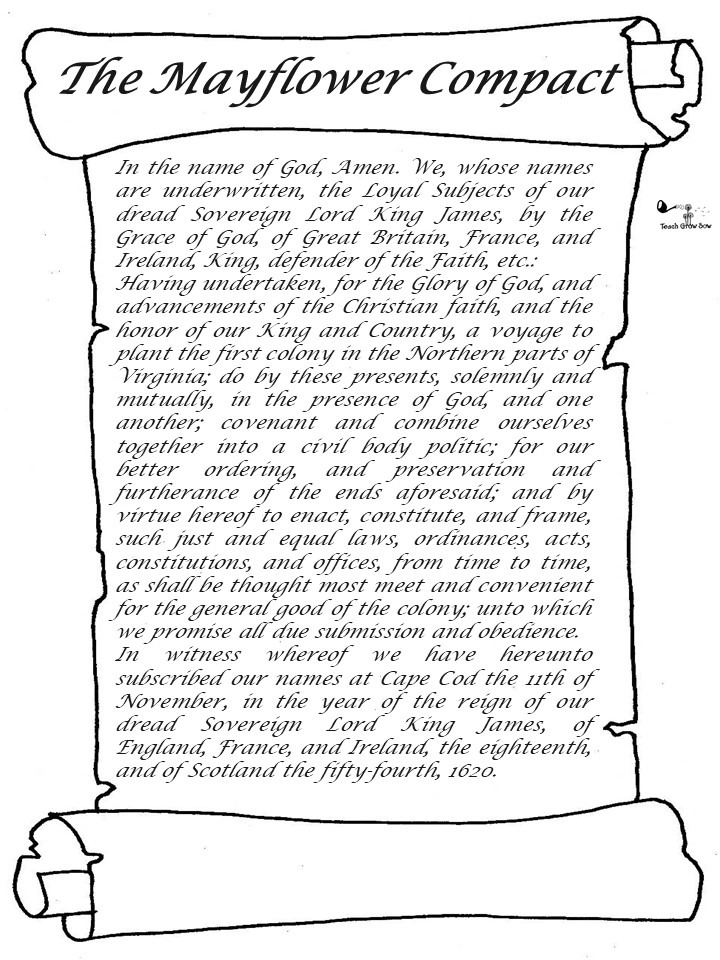 The Mayflower Compact
In the name of God, Amen. We, whose names
are underwritten, the Loyal Subjects of our
dread Sovereign Lord King James, by the
Grace of God, of Great Britain, France, and
Ireland, King, defender of the Faith, etc.:
Having undertaken, for the Glory of God, and
advancements of the Christian faith, and the
honor of our King and Country, a voyage to
plant the first colony in the Northern parts of
Virginia; do by these presents, solemnly and
mutually, in the presence of God, and one
another; covenant and combine ourselves
together into a civil body politic; for our
better ordering, and preservation and
furtherance of the ends aforesaid; and by
virtue hereof to enact, constitute, and frame,
such just and equal laws, ordinances, acts,
constitutions, and offices, from time to time,
as shall be thought most meet and convenient
for the general good of the colony; unto which
we promise all due submission and obedience.
In witness whereof we have hereunto
subscribed our names at Cape Cod the 11th of
November, in the year of the reign of our
dread Sovereign Lord King James, of
England, France, and Ireland, the eighteenth,
and of Scotland the fifty-fourth, 1620.
Teach Grow Sow